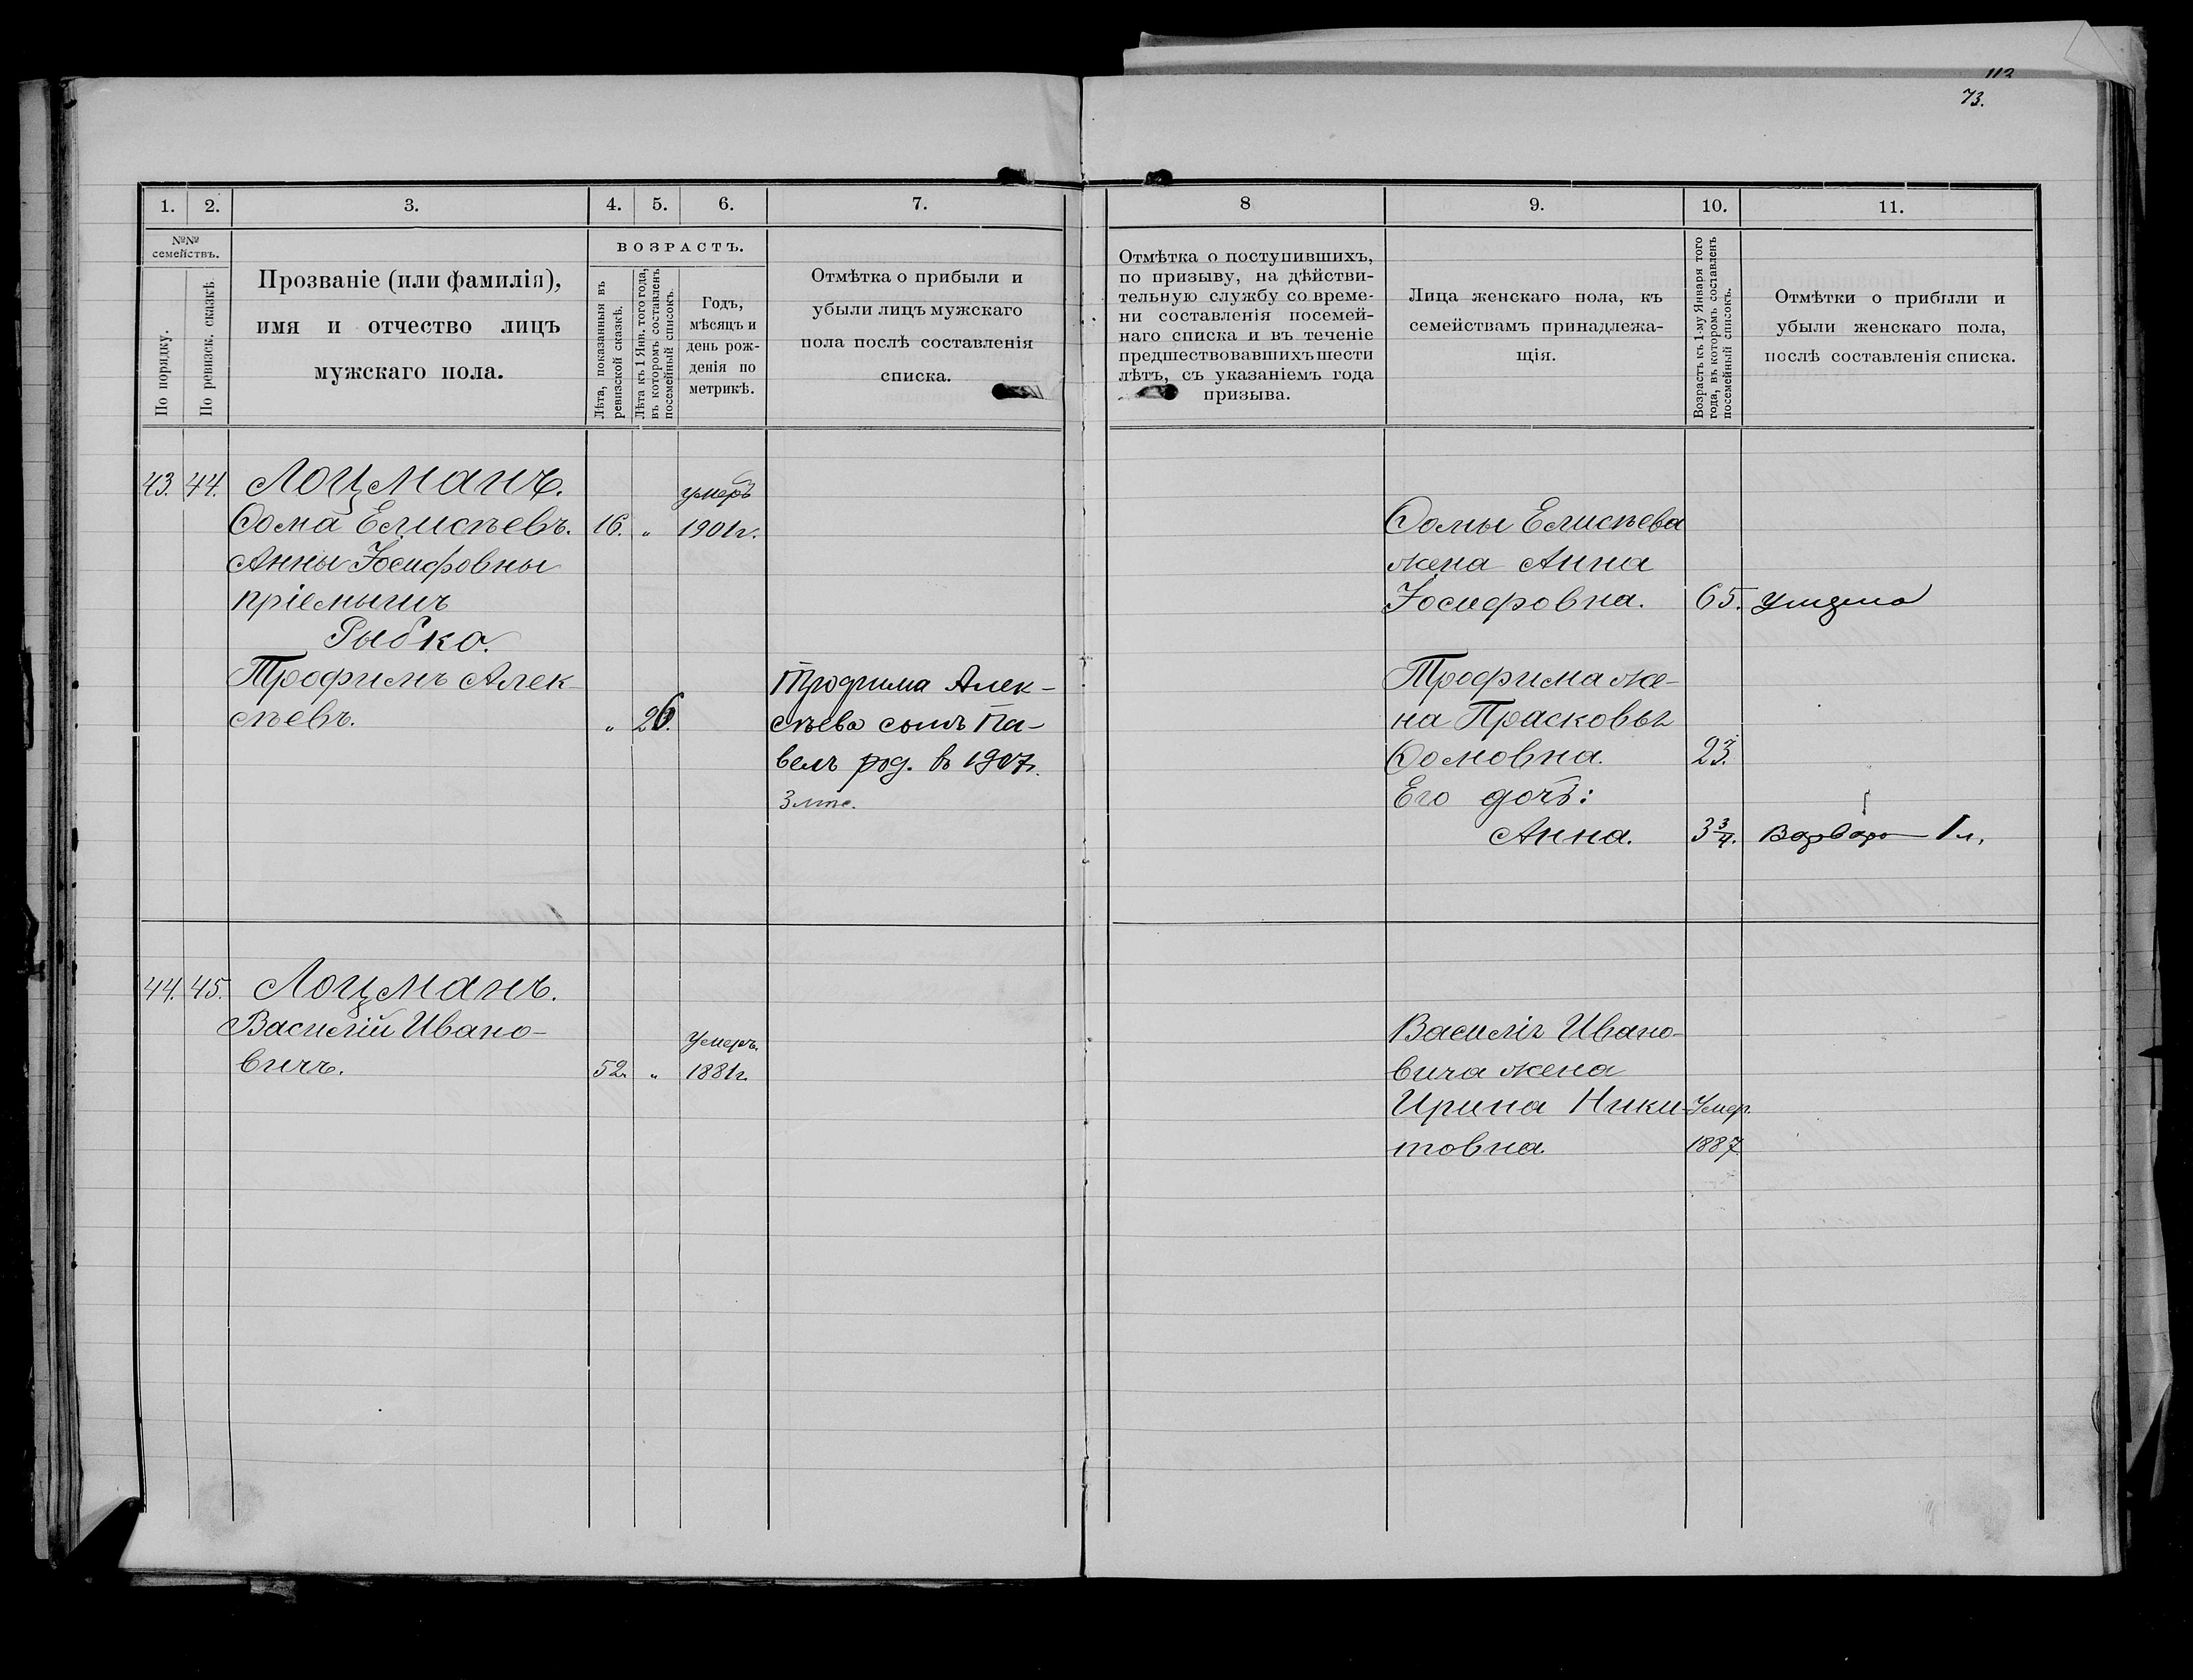 112
73.
1. 2. 3. 4. 5. 6. 7. 8 9. 10. 11.
№№ семействъ.
По порядку.
По ревизск. сказкѣ.
Прозваніе (или фамилія),
имя и отчество лицъ
мужскаго пола.
ВОЗРАСТЪ.
Лѣта, показанныя въ
ревизской сказкѣ.
Лѣта къ 1 Янв. того года,
въ которомъ составленъ
посемейный списокъ.
Годъ,
мѣсяцъ и
день рож-
денія по
метрикѣ.
Отмѣтка о прибыли и
убыли лицъ мужскаго
пола послѣ составленія
списка.
Отмѣтка о поступившихъ,
по призыву, на дѣйстви-
тельную службу со време-
ни составленія посемей-
наго списка и въ теченіе
предшествовавшихъ шести
лѣтъ, съ указаніемъ года
призыва.
Лица женскаго пола, къ
семействамъ принадлежа-
щія.
Возрастъ къ 1-му Января того
года, въ которомъ составленъ
посемейный списокъ.
Отмѣтки о прибыли и
убыли женскаго пола,
послѣ составленія списка.
43. 44. Лоцманъ. умеръ
Ѳома Елисѣевъ. 16. „ 1901г.
Анны Іосифовны
пріемышъ
Рыбка.
Трофимъ Алек-
сѣевъ. „ 26.
Трофима Алек-
сѣева сынъ Па-
велъ род. в 1907г.
3 лѣтъ.
Ѳомы Елисѣева
жена Анна
Іосифовна. 65. умерла
Трофима же-
на Прасковья
Ѳомовна. 23.
Его дочь:
Анна. 3 3/4. Варвара — 1 л.
44. 45. Лоцманъ.
Василій Ивано- Умеръ.
вичъ. 52. „ 1881г.
Василія Ивано-
вича жена
Ирина Ники- Умер.
товна. 1887